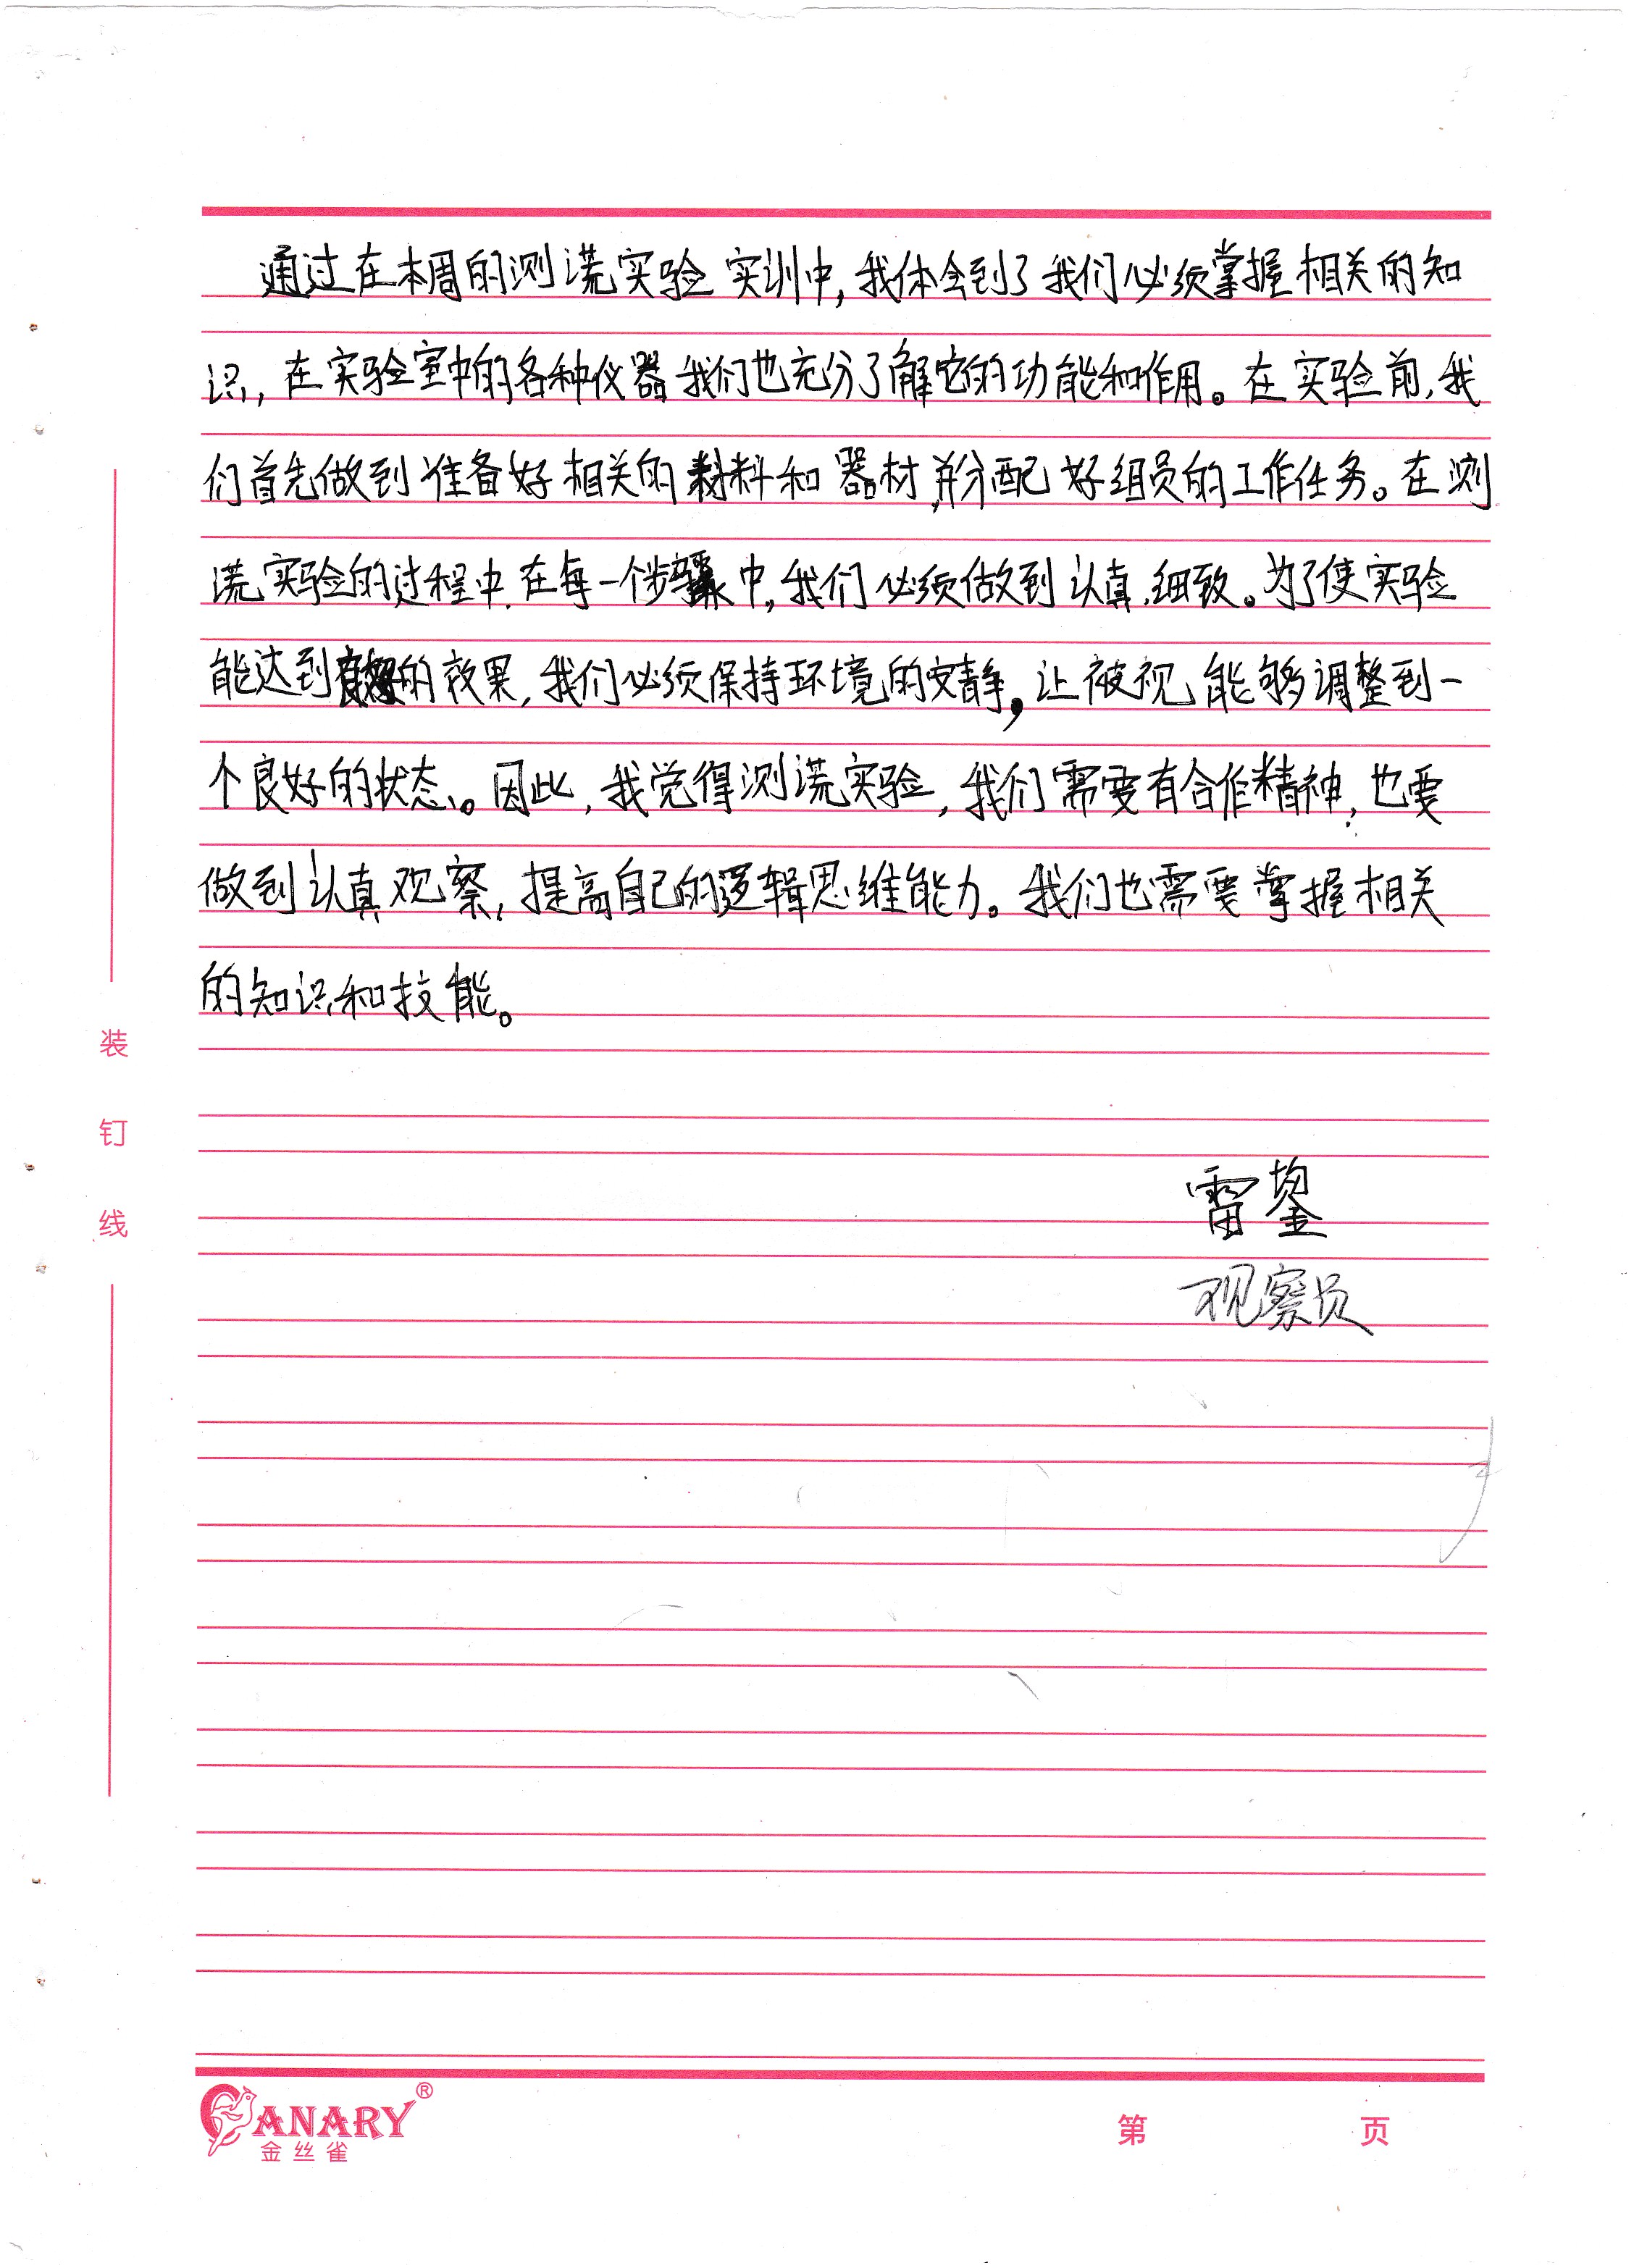 通过在本周的测谎实验实训中,我体会到了我们必须掌握相关的知
识,在实验室中的各种仪器我们也充分了解它的功能和作用。在实验前,我
们首先做到准备好相关的材料和器材,并分配好组员的工作任务。在测
谎实验的过程中,在每一个步骤中,我们必须做到认真,细致。为了使实验
能达到良好的效果,我们必须保持环境的安静,让被视能够调整到一
个良好的状态。因此,我觉得测谎实验,我们需要有合作精神,也要
做到认真观察,提高自己的逻辑思维能力。我们也需要掌握相关
的知识和技能。
雷鋆
观察员
装
钉
线
CANARY®
金丝雀
第 页